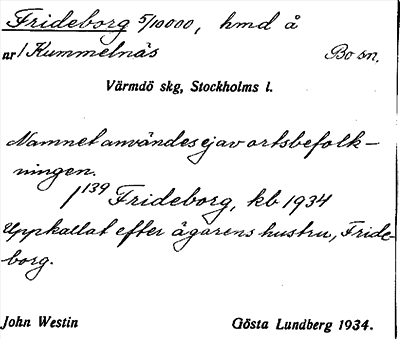 Frideborg 5/10000, hmd å
nr 1 Kummelnäs Bo sn,
Värmdö skg, Stockholms l.
Namnet användes ej av ortsbefolk-
ningen.
1 139 Frideborg, kb 1934
Uppkallat efter ägarens hustru, Fride-
borg.
John Westin Gösta Lundberg 1934.